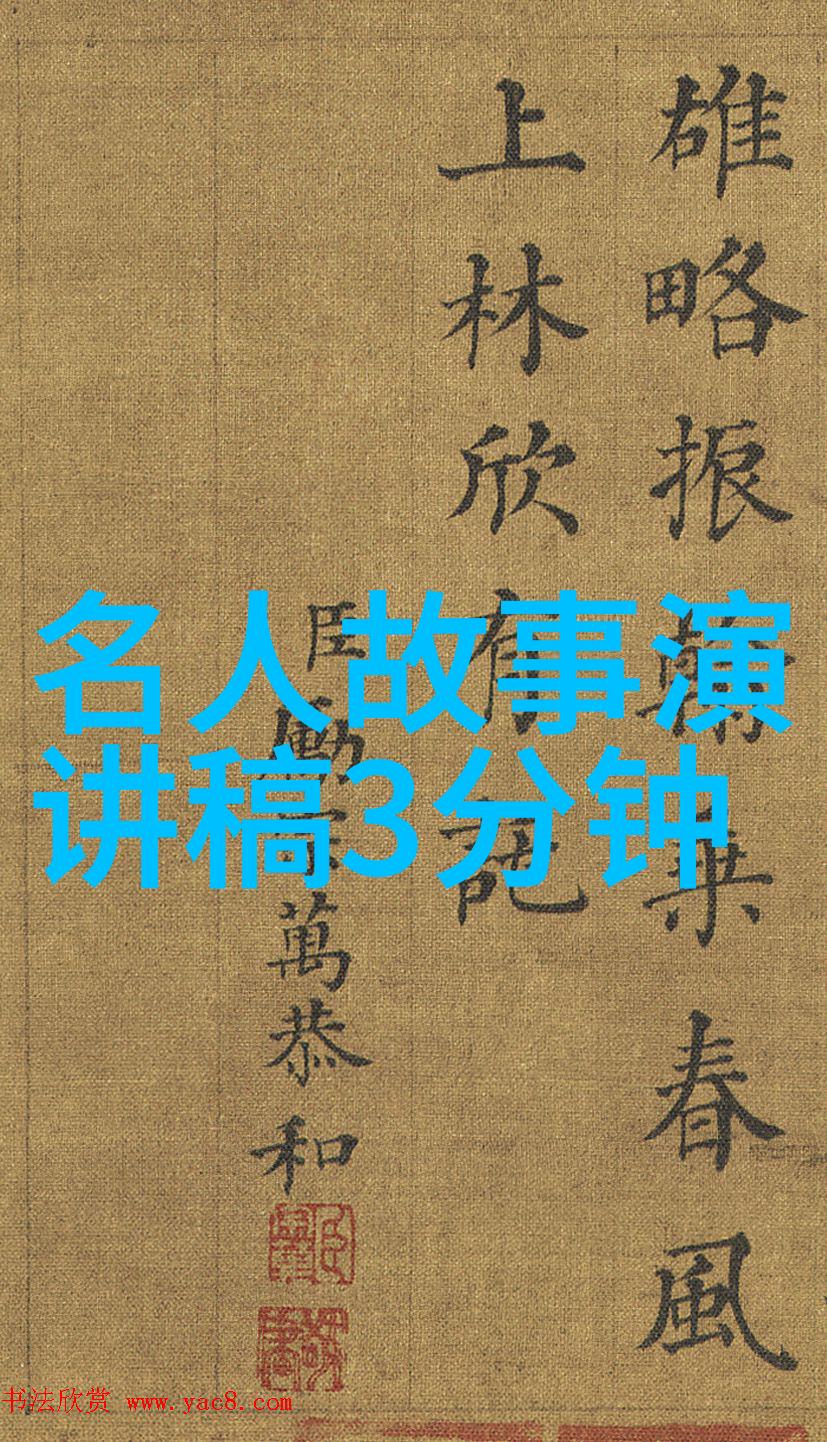 雄略振乘春風
上林欣有
臣勵宗萬恭和
名人故事演
讲稿3分钟
书法欣赏 www.yac8.com